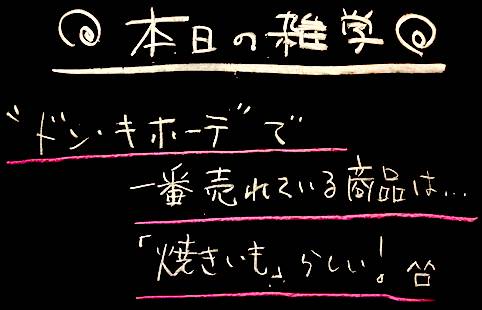 本日の雑学
"ドン・キホーテ"で
一番売れている商品は...
「焼きいも」らしい!